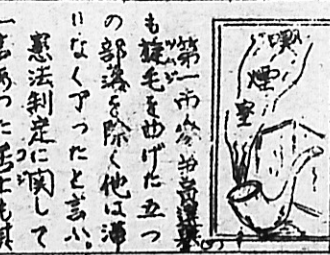 喫煙室
第一
も旋毛を曲げた五つ
の部落を除く他は滞
りなく了ったと言ふ。
憲法制定に関して
一言あった居士も其